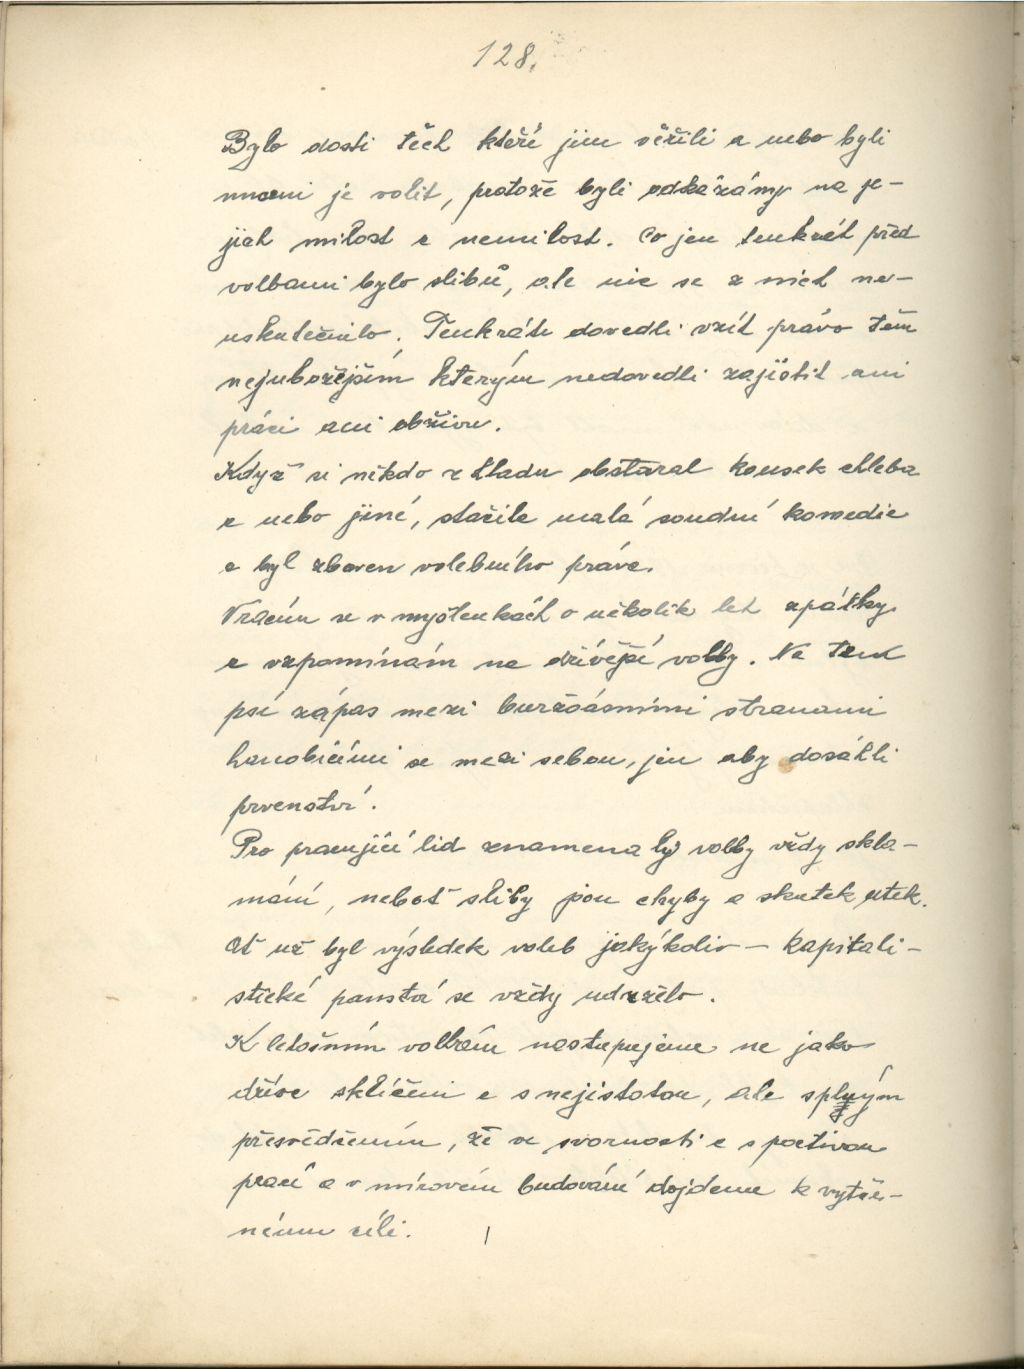 128.
Bylo dosti těch kteří jim věřili a nebo byli
nuceni je volit, protože byli odkázány na je-
jich milost a nemilost. Co jen tenkrát před
volbami bylo slibů, ale nic se z nich ne-
uskutečnilo. Tenkráte dovedli vzít právo těm
nejubožejším kterým nedovedli zajistit ani
práci ani obživu.
Když si někdo z hladu obstaral kousek chleba
a nebo jiné, stačila malá soudní komedie
a byl zbaven volebního práva.
Vracím se v myšlenkách o několik let zpátky
a vzpomínám na dřívější volby. Na ten
psí zápas mezi buržoasními stranami
hanobícími se mezi sebou, jen aby dosáhli
prvenství.
Pro pracující lid znamenaly volby vždy skla-
mání, neboť sliby jsou chyby a skutek utek.
Ať už byl výsledek voleb jakýkoliv – kapitali-
stické panství se vždy udrželo.
K letošním volbám nastupujeme ne jako
dříve sklíčeni a s nejistotou, ale s plným
přesvědčením, že ve svornosti a s poctivou
prací a v mírovém budování dojdeme k vytče-
nému cíli.